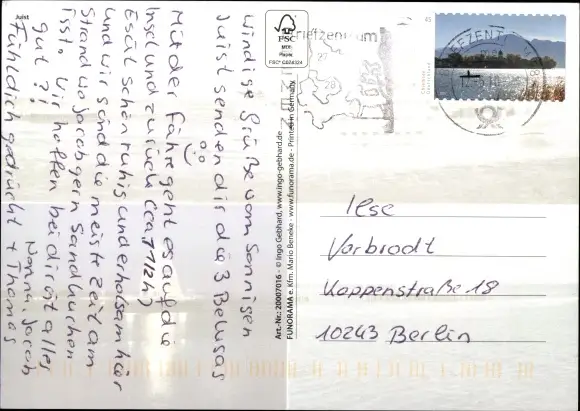 Windige Grüße vom Sonnigen
Juist senden dir die 3 Belugas
Mit der Fähre geht es auf die
Insel und zurück (ca. 1 1/2 h)
Es ist schön ruhig und erholsam hier
und wir sind die meiste Zeit am
Strand wo Jacob gern Sandkuchen
isst. Wir hoffen bei dir ist alles
gut?!
Fühl dich gedrückt + Thomas
Nonni, Jacob
Juist
FSC
MIX
Papier
FSC® C024324
Briefzentrum
27
28
45
Chiemsee
Deutschland
BRIEFZENTRUM
Art.-Nr.: 20007016 - © Ingo Gebhard, www.ingo-gebhard.de
FUNORAMA e. Kfm. Mario Beneke - www.funorama.de - Printed in Germany
Ilse
Vorbrodt
Koppenstraße 18
10243 Berlin